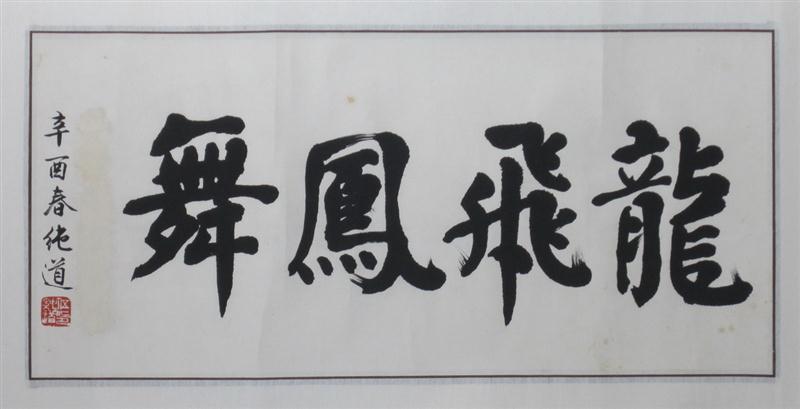 龍飛鳳舞
辛酉春純道